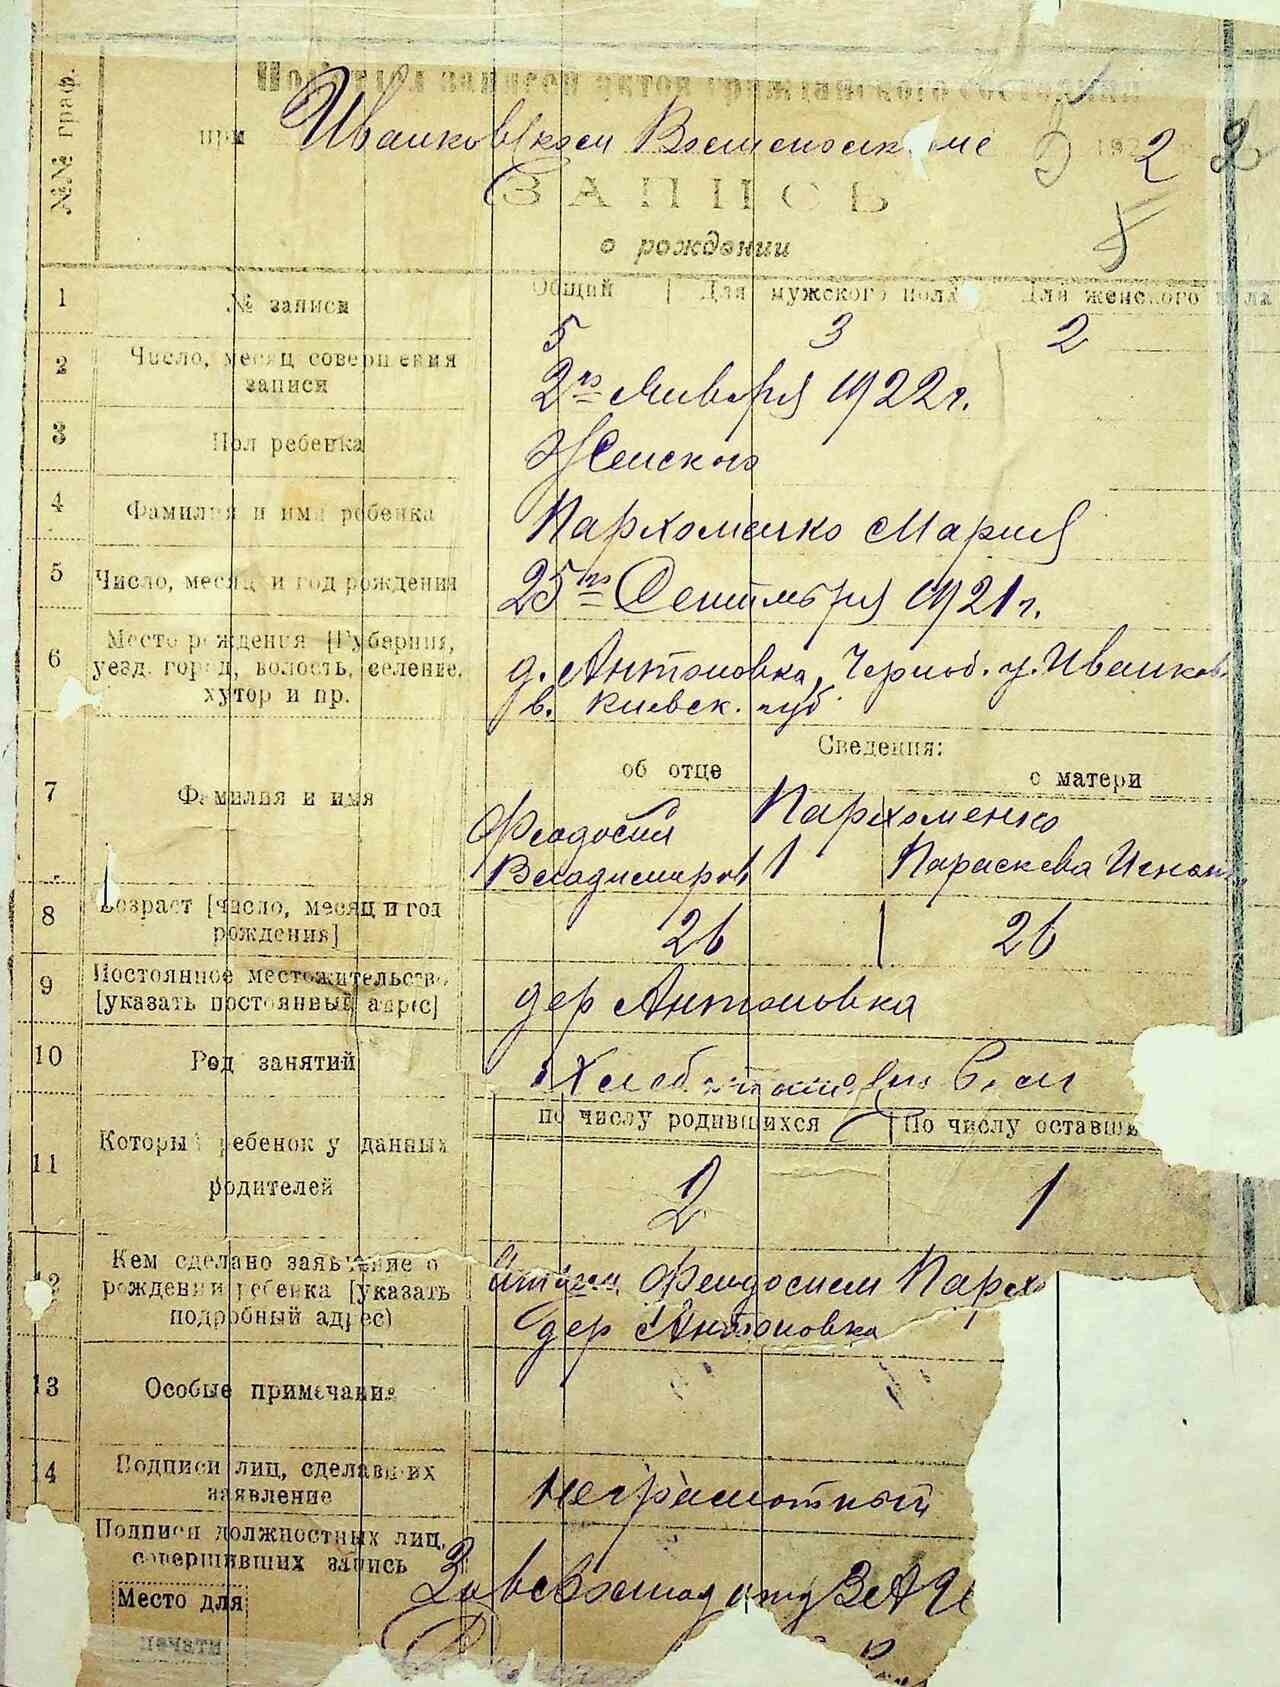 Подотдел записей актов гражданского состояния
при Иванковском 192 2
2
ЗАПИСЬ
о рождении
№№ граф.
1 № записи Общий Для мужского пола Для женского пола
5 3 2
2 Число, месяц совершения записи
2го Января 1922 г.
3 Пол ребенка Женского
4 Фамилия и имя ребенка Пархоменко Мария
5 Число, месяц и год рождения 25го Сентября 1921 г.
6 Место рождения [Губерния,
уезд, город, волость, селение, д. Антоновка, Черноб. у. Иванков.
хутор и пр. в. Киевск. губ.
Сведения:
об отце о матери
7 Фамилия и имя Пархоменко
Феодосий
Владимиров Параскева Игнат
8 Возраст [число, месяц и год
рождения] 26 26
9 Постоянное местожительство
[указать постоянный адрес] дер Антоновка
10 Род занятий
по числу родившихся По числу оставши
11 Который ребенок у данных
родителей 2 1
12 Кем сделано заявление о
рождении ребенка [указать Феодосием Парх
подробный адрес) дер Антоновка
13 Особые примечания
14 Подписи лиц, сделавших
заявление неграмотный
Подписи должностных лиц,
совершивших запись
Место для
печати